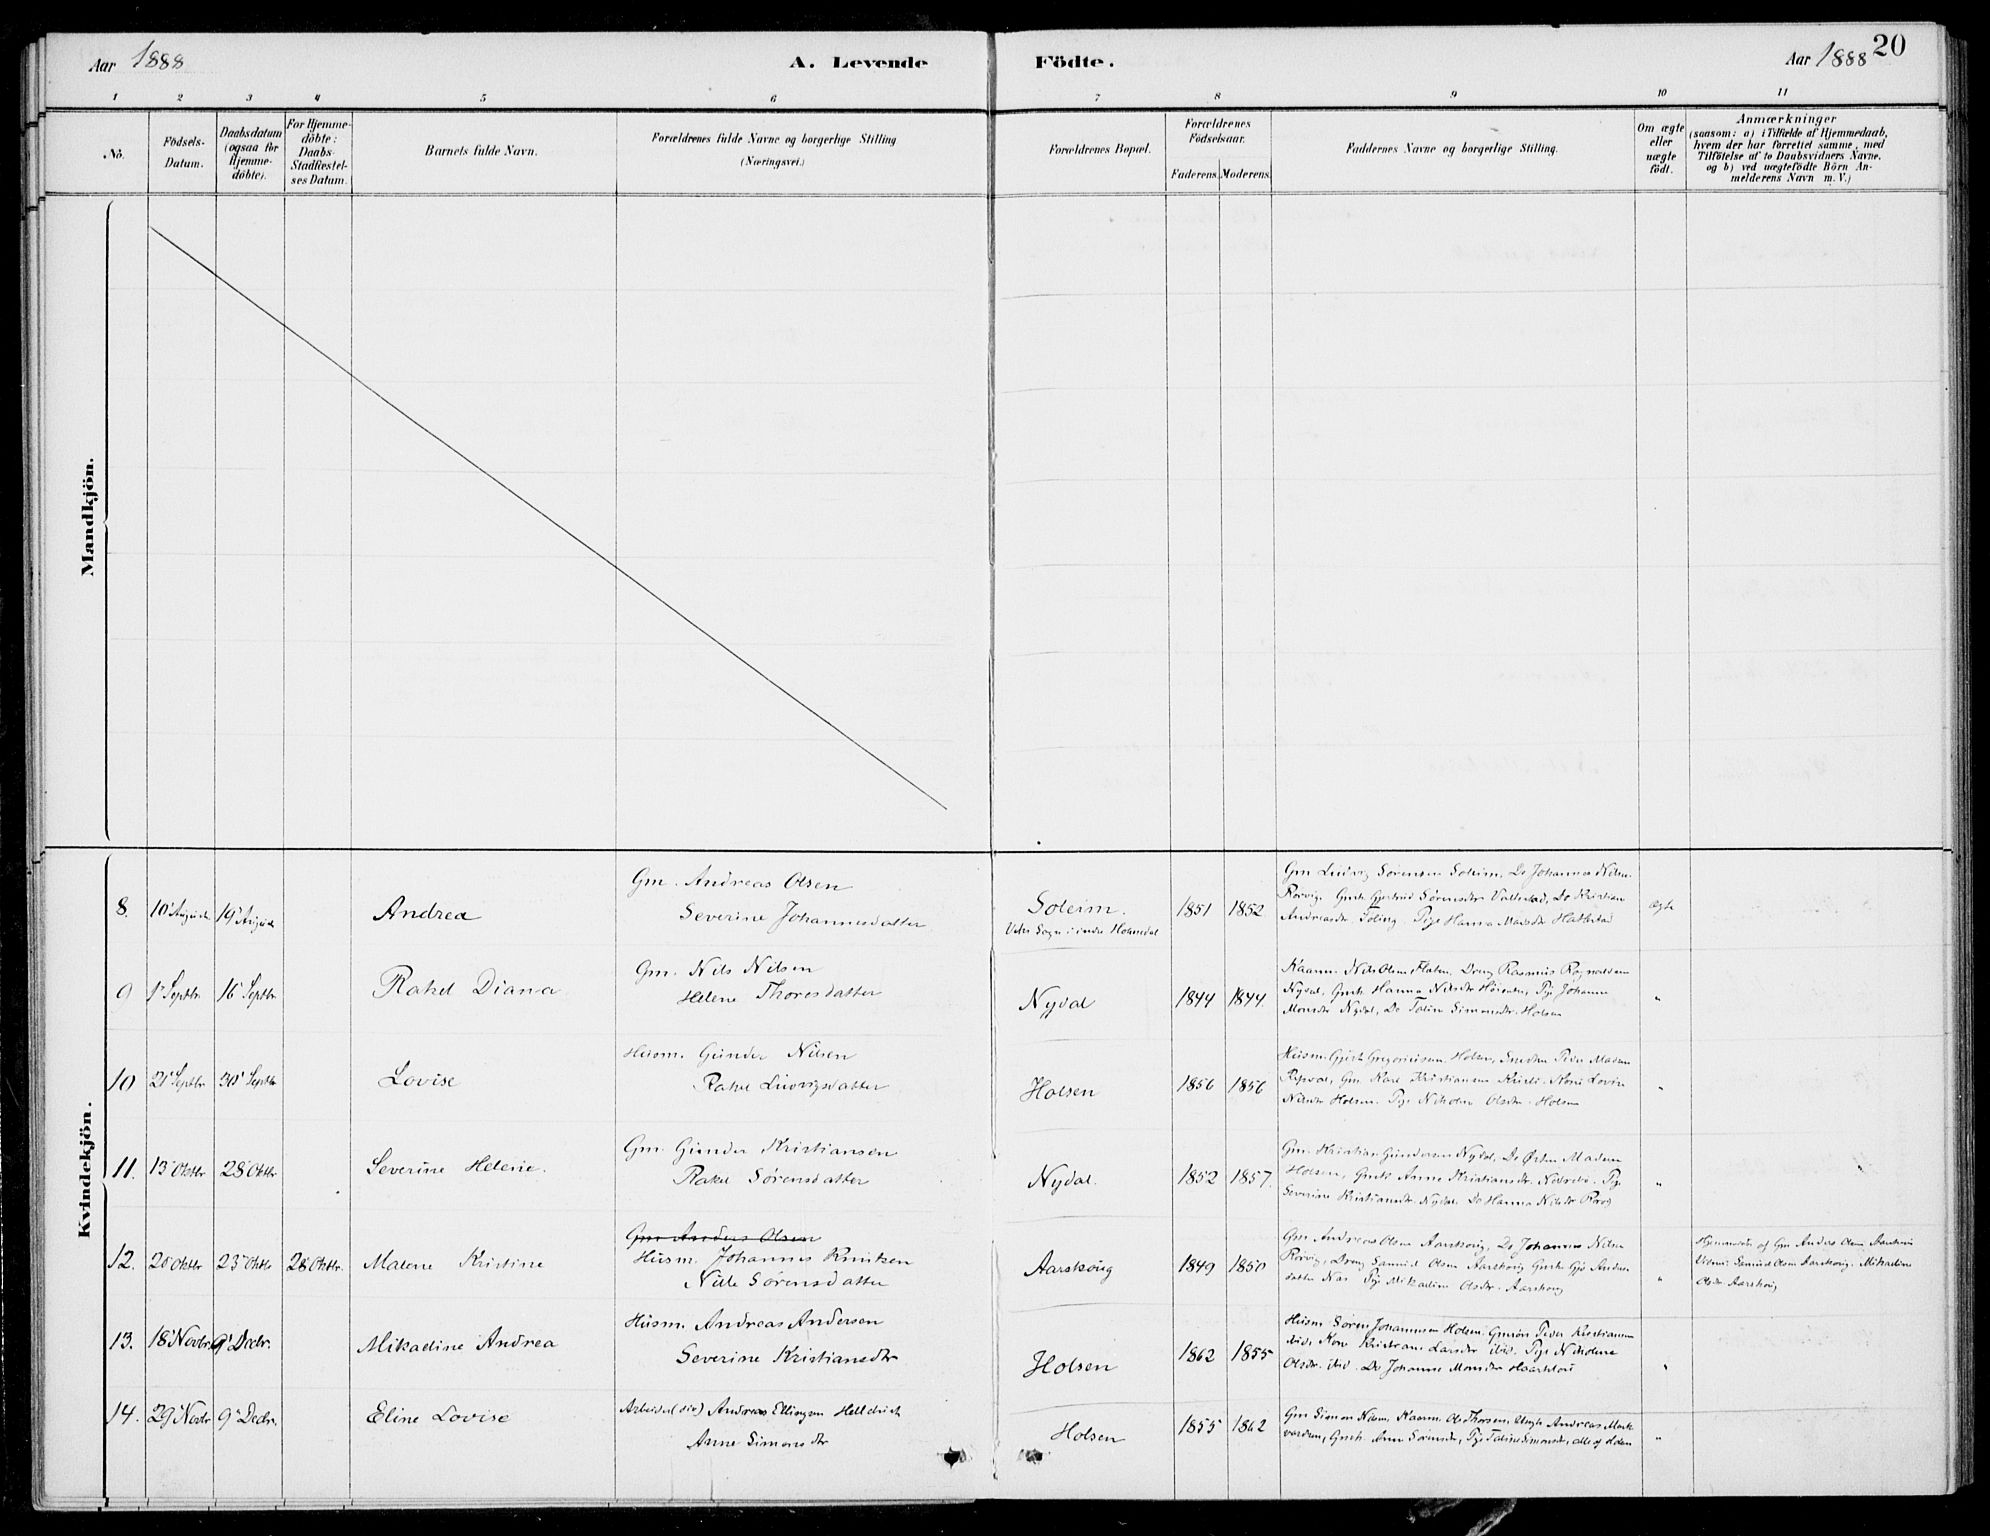 Aar 1888
A. Levende
Födte.
Aar 1888
20
1 2 3 4 5 6 7 8 9 10 11
No.
Födsels-
Datum.
Daabsdatum
(ogsaa for
Hjemme-
döbte).
For Hjemme-
döbte:
Daabs-
Stadfæstel-
ses Datum.
Barnets fulde Navn.
Forældrenes fulde Navne og borgerlige Stilling
(Næringsvei.)
Forældrenes Bopæl.
Forældrenes
Födselsaar.
Faderens. Moderens.
Faddernes Navne og borgerlige Stilling.
Om ægte
eller
uægte
födt.
Anmærkninger
(saasom: a) i Tilfælde af Hjemmedaab,
hvem der har forrettet samme, med
Tilföielse af to Daabsvidners Navne,
og b) ved uægtefödte Börn An-
melderens Navn m. V.)
Mandkjön.
Kvindekjön.
8. 10 August 19 August
Andrea
Gm. Andreas Olsen
Severine Johannesdatter
Soleim.
Sogn i indre Holmedal
1851 1852
Gm Ludvig Sörensen Soleim, Do Johannes Nilsen
Rörvig. Gmk Gjertrud Sörensdtr Do Kristian
Pige Hanna Madsdtr Hatlestad
ægte
9 1 Septbr. 16 Septbr.
Rakel Diana
Gm. Nils Nilsen
Helene Thoresdatter
Nydal
1844 1844.
Kaarm. Nils Olsen Flaten, Dreng Rasmus Rognaldsen
Nydal, Gmk Hanna Nilsdtr Pige Johanne
Monsdtr Nydal, Do Taline Simonsdtr. Holsen
"
10 21 Septbr 30 Septbr
Lovise
Husm. Gunder Nilsen
Rakel Ludvigsdatter
Holsen
1856 1856
Husm. Gjert Gregoriusen Holsen, Peder Madsen
Gm Karl Kristiansen Kone Lovise
Nilsdtr Holsen. Pige Nikoline Olsdtr. Holsen
"
11. 13 Oktbr 28 Oktbr
Severine Helene.
Gm. Gunder Kristiansen
Rakel Sørensdatter
Nydal.
1852 1857.
Gm. Kristian Gundersen Nydal, Do Østen Madsen
Holsen, Gmk Anne Kristiansdtr. Pige
Severine Kristiansdtr. Nydal. Do Hanna Nilsdtr
"
12. 20 Oktbr 23 Oktbr 28 Oktbr.
Malene Kristine
Gm Anders Olsen
Husm. Johannes Knutsen
Nille Sørensdatter
Aarskoug
1849 1850
Gm Andreas Olsen Aarskoug, Do Johannes Nilsen
Rörvig, Dreng Samuel Olsen Aarskoug Gmk
Pige Mikadine Olsdtr. Aarskoug
"
Hjemmedøbt af Gm Anders Olsen Aarskoug
Vidner: Samuel Olsen Aarskoug. Mikadine
Olsdtr Aarskoug
13. 18 Novbr. 9 Decbr.
Mikadine Andrea
Husm. Andreas Andersen
Severine Kristiansdtr
Holsen
1862 1855
Husm Sören Johannesen Holsen. Peder Kristiansen
ibid. Kone Kristiane Larsdtr ibid. Pige Nikoline
Olsdtr. ibid. Do Johanne Monsdtr
"
14. 29 Novbr 9 Decbr.
Eline Lovise
Arbeider Andreas Ellingsen
Anne Simonsdtr
Holsen
1855 1862
Gm Simon Nilsen, Kaarm. Ole Thorsen, Ungk Andreas
Gmk. Anne Sörensdtr, Pige Taline Simonsdtr, alle af Holsen
"